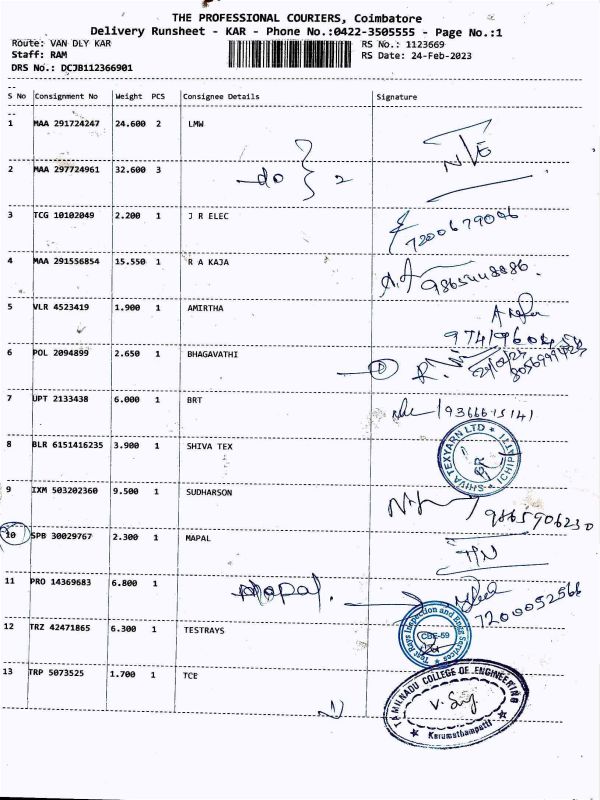 THE PROFESSIONAL COURIERS, Coimbatore
Delivery Runsheet - KAR - Phone No.:0422-3505555 - Page No.:1
Route: VAN DLY KAR RS No.: 1123669
Staff: RAM RS Date: 24-Feb-2023
DRS No.: DCJB112366901
S No Consignment No Weight PCS Consignee Details Signature
1 MAA 291724247 24.600 2 LMW N/E
2 MAA 297724961 32.600 3 do } 2
3 TCG 10102049 2.200 1 J R ELEC 7200679046
4 MAA 291556854 15.550 1 R A KAJA
5 VLR 4523419 1.900 1 AMIRTHA
6 POL 2094899 2.650 1 BHAGAVATHI
7 UPT 2133438 6.000 1 BRT 9366615141
8 BLR 6151416235 3.900 1 SHIVA TEX
SHIVA TEXYARN LTD
9 IXM 503202360 9.500 1 SUDHARSON 9865906230
10 SPB 30029767 2.300 1 MAPAL
11 PRO 14369683 6.800 1 mapal. 7200052566
12 TRZ 42471865 6.300 1 TESTRAYS
Test Rays Inspection and Engg Services
CBE-59
13 TRP 5073525 1.700 1 TCE
TAMILNADU COLLEGE OF ENGINEERING
Karumathampatti